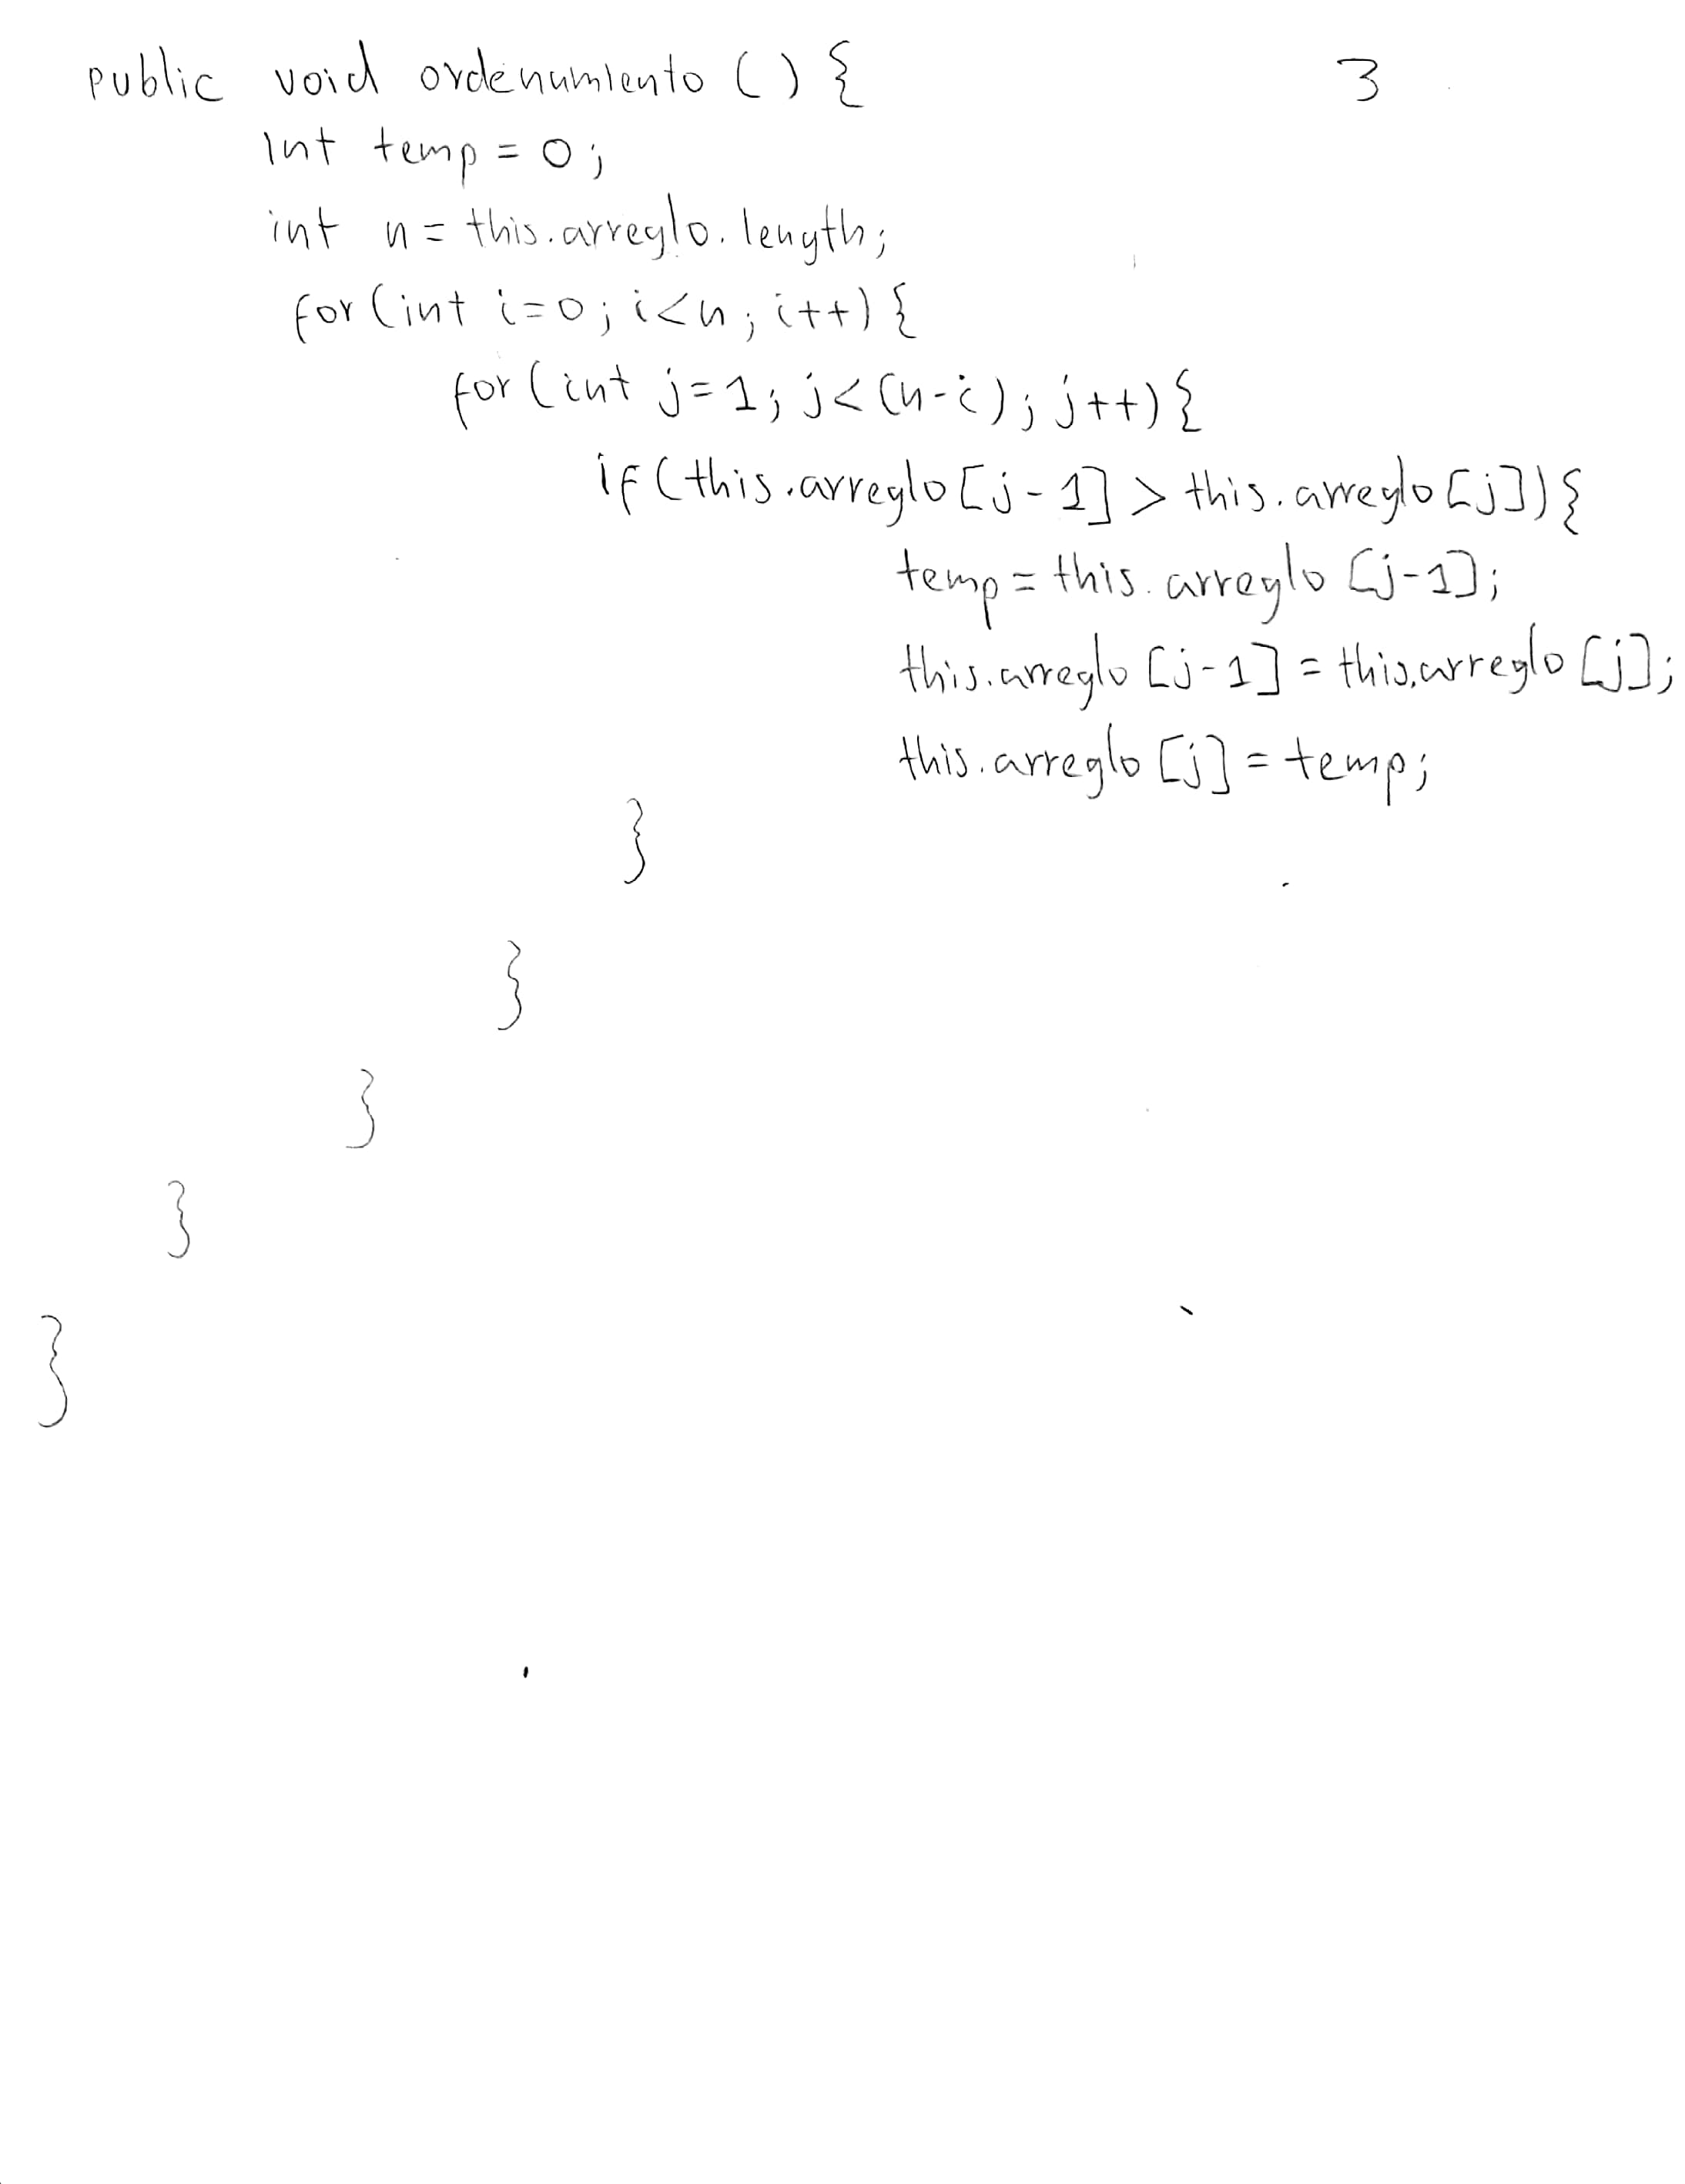 public void ordenamiento () { 3
int temp = 0;
int n = this.arreglo.length;
for (int i=0; i<n; i++) {
for (int j=1; j<(n-i); j++) {
if (this.arreglo[j-1] > this.arreglo[j]) {
temp = this.arreglo [j-1];
this.arreglo [j-1] = this.arreglo [j];
this.arreglo [j] = temp;
}
}
}
}
}